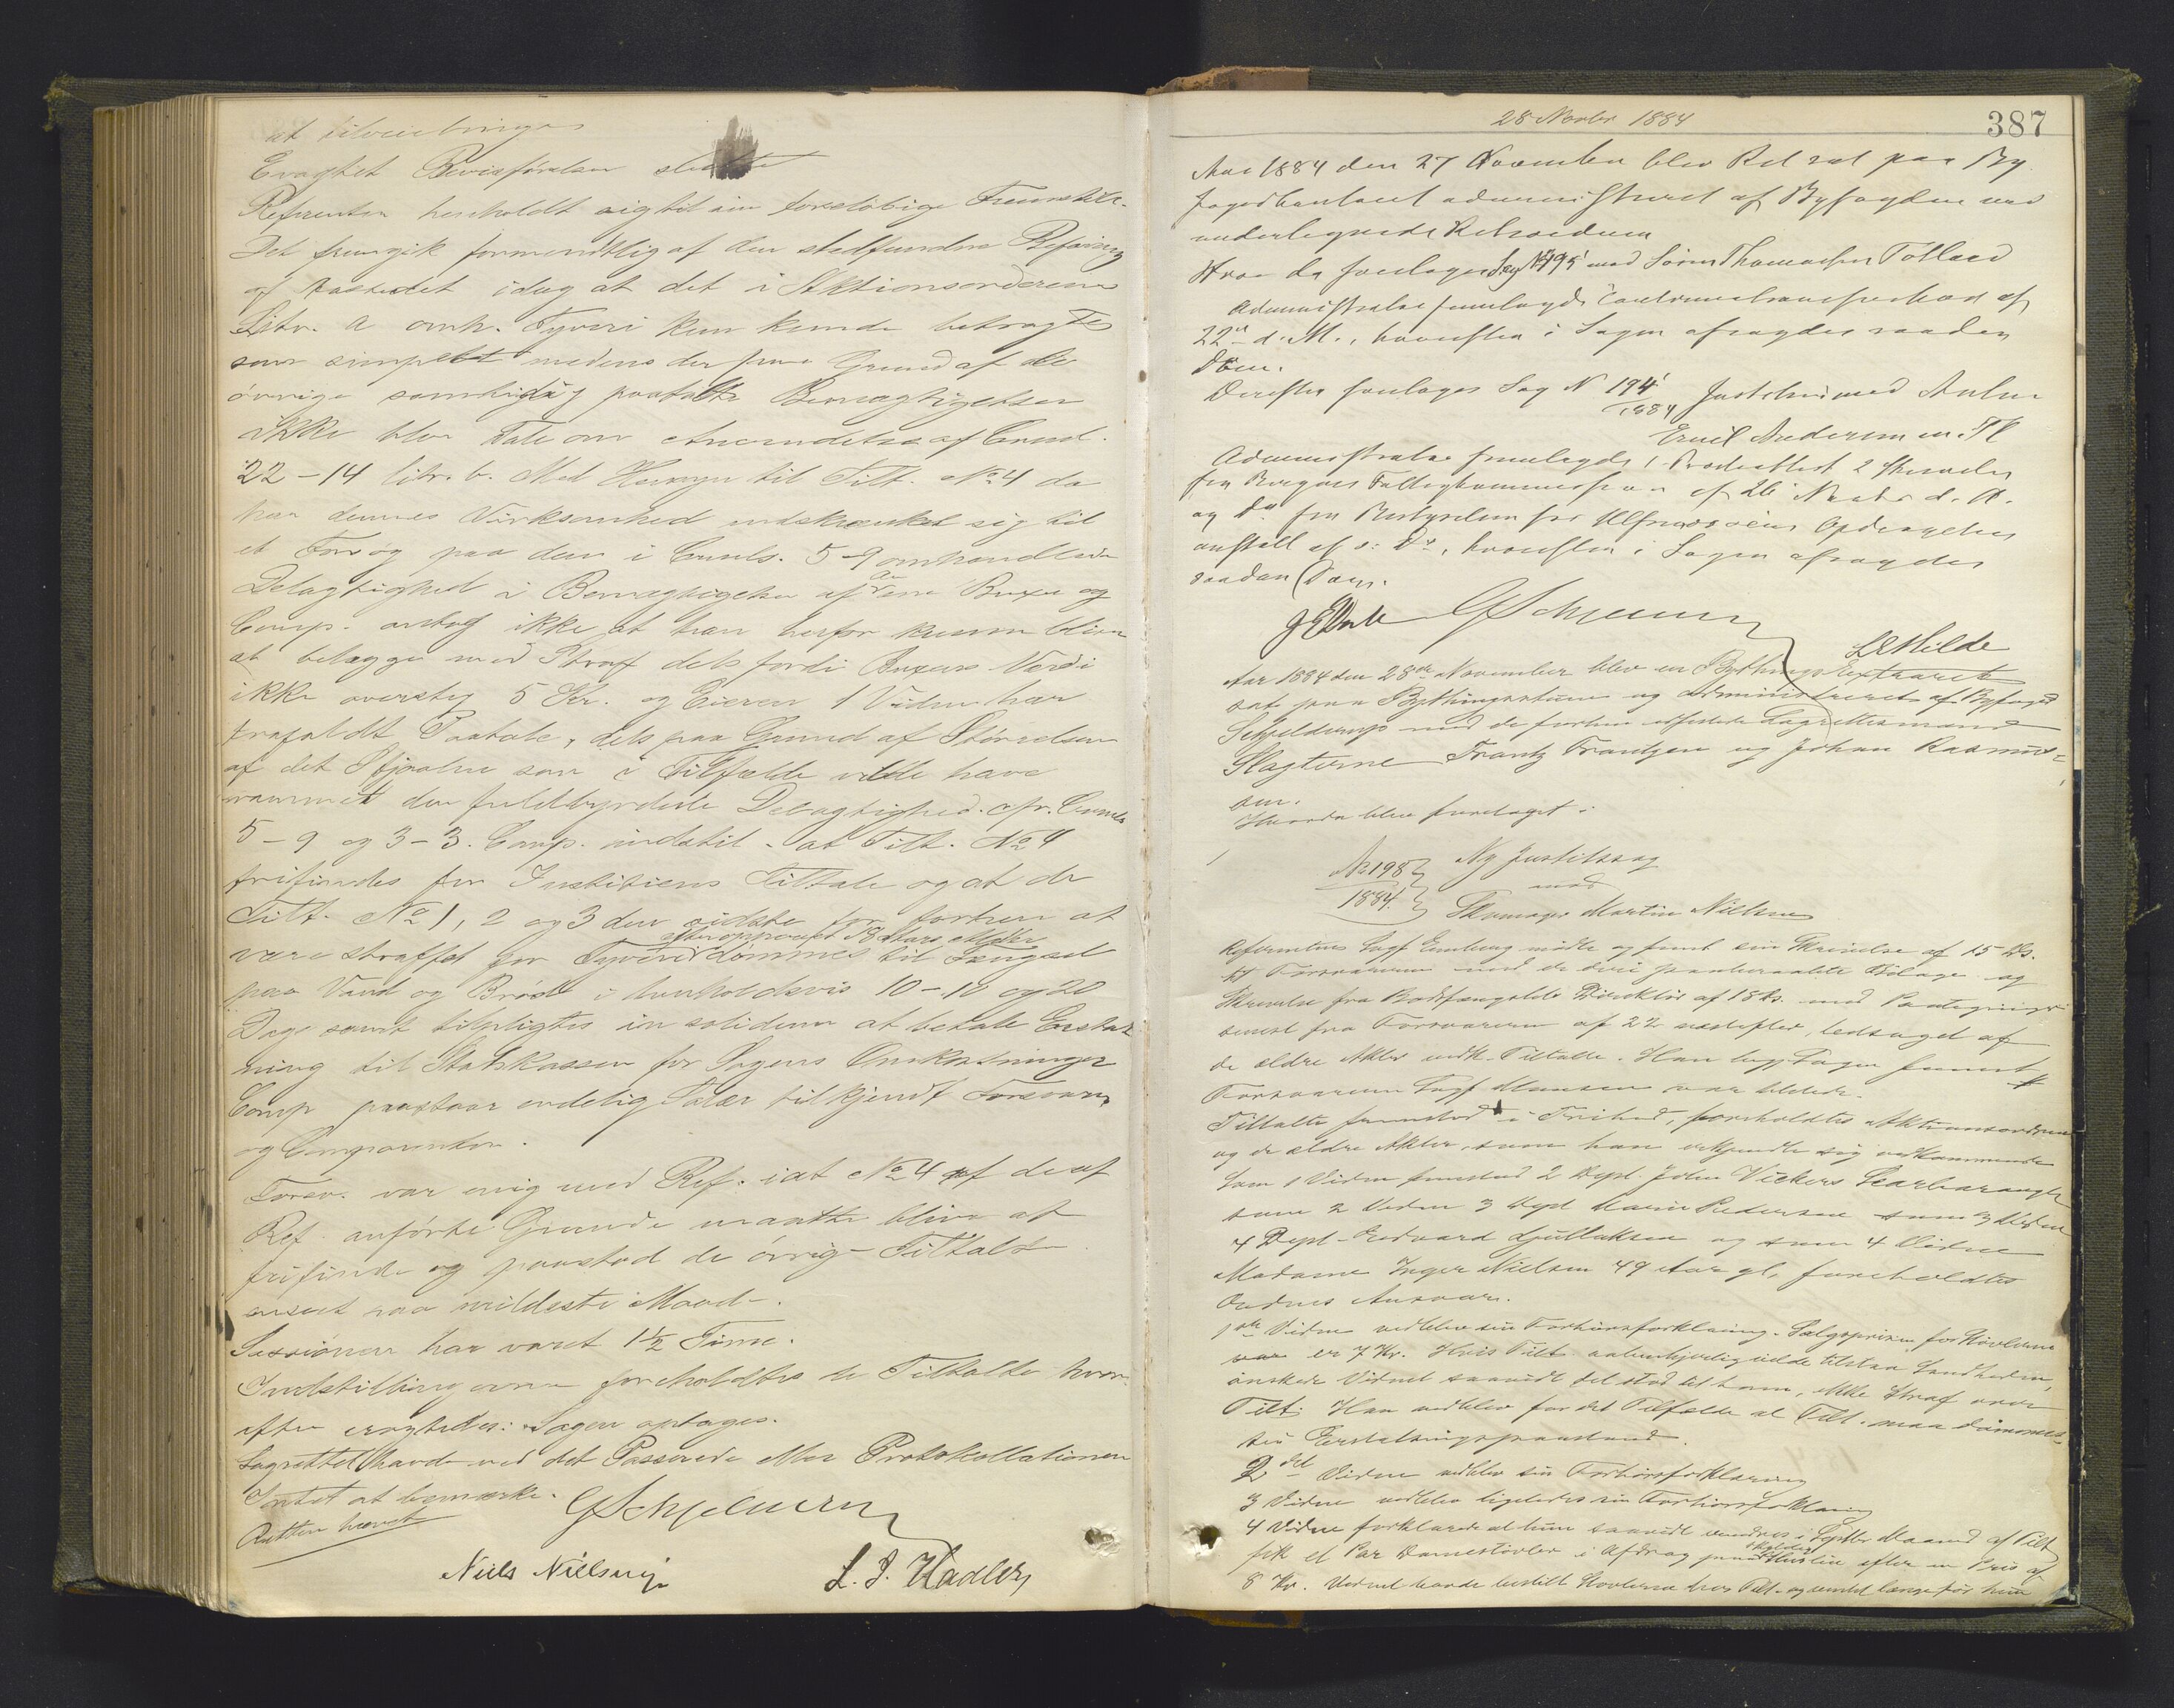 at tilveiebringes
Eragtet Bevisførelsen sluttet
Referenten henholdt sig til sin foreløbige Fremstill-
Det fremgik formentlig af den stedfundne Befaring
af Aastedet idag at det i Aktionsorderens
Litr. a omh. Tyveri kun kunde betragtes
som simpelt medens der paa Grund af de
øvrige samtidig paatalte Bemægtigelser
ikke blev Tale om Anvendelse af Criml.
22-14 litr. b. Med Hensyn til Tilt. No 4 da
har dennes Virksomhed indskrænket sig til
et Forsøg paa den i Crimls. 5-9 omhandlede
Delagtighed i Bemægtigelse af et Par Buxer og
Comp. antog ikke at han herfor kunde blive
at belægge med Straf dels fordi Buxens Værdi
ikke oversteg 5 Kr. og Eieren 1 Vidne har
frafaldt Paatale, dels paa Grund af Størrelsen
af det Stjaalne som i Tilfælde vilde have
rammet den fuldbyrdede Delagtighed. cfr. Crimls
5-9 og 3-3. Comp. indstil. at Tilt. No 4
frifindes for Justitiens Tiltale og at de
Tilt. No 1, 2 og 3 den sidste for forhen at
være straffet for Tyveri dømmes til Fængsel
paa Vand og Brød i henholdsvis 10-10 og 20
Dage samt tilpligtes in solidum at betale Erstat
ning til Statskassen for Sagens Omkostninger
Comp paastaar endelig Salær tilkjendt Forsvarer
og Comparenten.
Forsv. var enig med Ref. i at No 4 af de af
Ref. anførte Grunde maatte blive at
frifinde og paastod de øvrige Tiltalte
anseet paa mildeste Maade.
Sessionen har varet 1½ Time.
Indstillingerne foreholdtes de Tiltalte hvor-
efter eragtedes: Sagen optages.
Lagrettet havde ved det Passerede eller Protokollationen
Intet at bemærke.
Retten hævet
Niels Nielsen L. J. Hadler
28 Novbr 1884 387
Aar 1884 den 27 November blev Ret sat paa By
fogedkontoret administreret af Byfogden ved
undertegnede Retsvidner
Hvor da foretoges Sag No 195 mod Søren Thomassen Totland
Administrator fremlagde
22de d. M., hvorefter i Sagen afsagdes saadan
Dom.
Derefter foretoges Sag N 194/1884 Justitsen mod Anton
Emil Andersen m. Fl
Administrator fremlagde 1 Præsteattest 2 Skrivelse
fra Bergens Fattigkommission af 26 Novbr d. A.
og Do fra Bestyrelsen for Ulfsnesøens Opdragelses
anstalt af s. D., hvorefter i Sagen afsagdes
saadan Dom.
Aar 1884 den 28de November blev en Bythings Extraret
sat paa Bythingsstuen og administreret af Byfoged
Schjelderup med de forhen edfæstede Lagrettesmænd
Slagterne Frantz Frantzen og Johan Rasmus=
sen.
Hvorda blev foretaget:
1
No 198 Ny Justitssag
1884. mod
Skomager Martin Nielsen
Referenten Sagf Lemburg mødte og fremlagde sin Skrivelse af 15 ds.
til Forsvareren med de deri paaberaabte Bilage og
Skrivelse fra Bodsfængslets Direktør af 18 ds. med Paategninger
senest fra Forsvareren af 22 næstefter, ledsaget af
de ældre Akter vedk. Tiltalte. Han begj. Sagen fremmet
Forsvareren Sagf Monsen var tilstede.
Tiltalte fremstod i Frihed, foreholdtes Aktionsordren
og de ældre Akter, som han vedkjendte sig vedkommende
Som 1 Vidne fremstod 2 Depl. John Vickers Scarbarough
som 2 Vidne 3 Depl Marie Pedersen som 3 Vidne
4 Depl. Edvard Gulbaksen og som 4 Vidne
Madame Inger Nielsen 49 Aar gl. foreholdtes
Ordnes Ansvar.
1ste Vidne vedblev sin Forhørsforklaring. Salgsprisen for Støvlerne
var er 7 Kr. Hvis Tilt. aabenhjertig vilde tilstaa Sandheden,
ønskede Vidnet saavidt det stod til ham, ikke Straf over
Tilt. Han vedblev for det Tilfælde at Tilt. maa dømmes
sin Erstatningspaastand.
2det Vidne vedblev sin Forhørsforklaring
3 Vidne vedblev ligeledes sin Forhørsforklaring
4 Vidne forklarede at hun saavidt erindres i Septbr Maaned af Tilt
fik et Par Damestøvler i Afdrag paa skyldig Husleie efter en Pris af
8 Kr. Vidnet havde bestilt Støvlerne hos Tilt. og ventet længe før hun